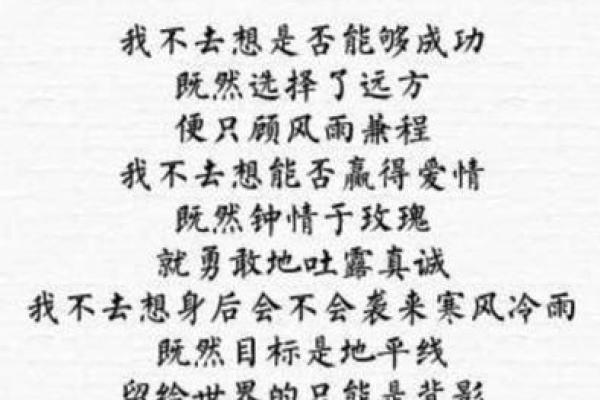 我不去想是否能够成功
既然选择了远方
便只顾风雨兼程
我不去想能否赢得爱情
既然钟情于玫瑰
就勇敢地吐露真诚
我不去想身后会不会袭来寒风冷雨
既然目标是地平线
留给世界的只能是背影